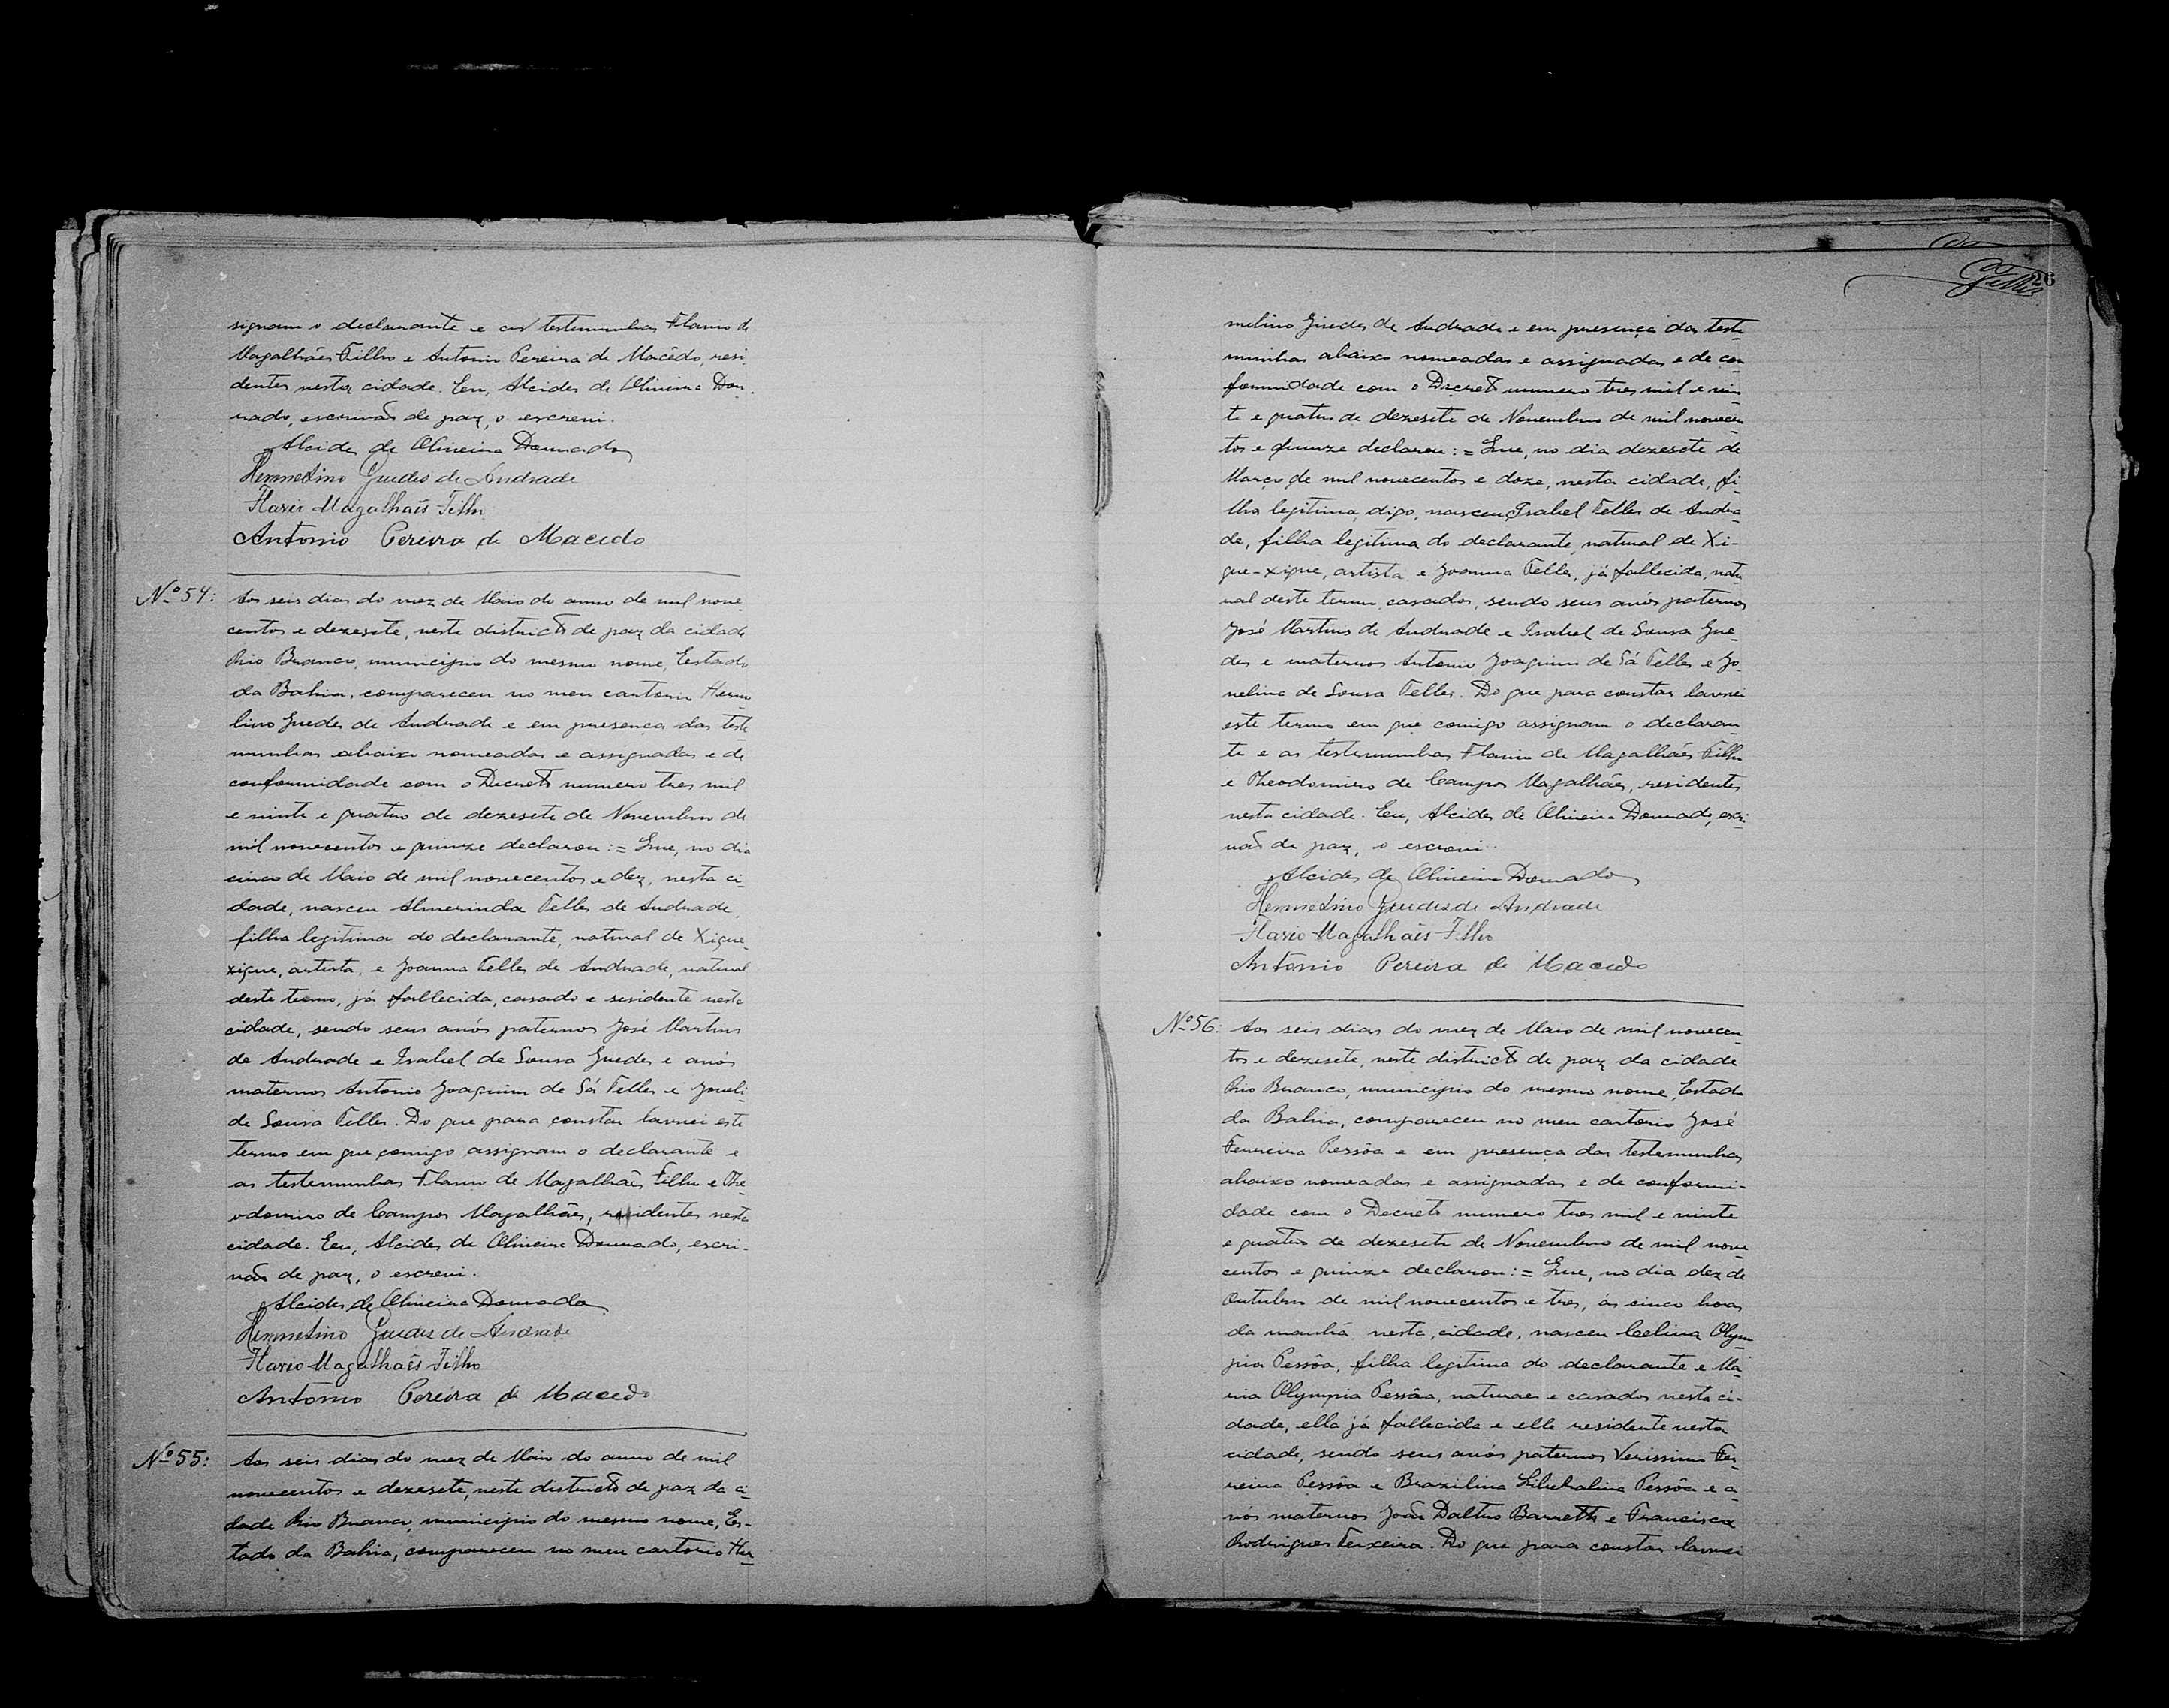 signam o declarante e as testemunhas Flavio de
Magalhães Filho e Antonio Pereira de Macêdo, resi
dentes nesta cidade. Eeu, Alcides de Oliveira Dou-
rado, escrivão de paz, o escrevi.
Alcides de Oliveira Dourado
Hermelino Guedes de Andrade
Flavio Magalhães Filho
Antonio Pereira de Macedo
Nº 54:
Aos seis dias do mez de Maio do anno de mil nove
centos e dezesete, neste districto de paz da cidade
Rio Branco, municipio do mesmo nome, Eestado
da Bahia, compareceu no meu cartorio Herme
lino Guedes de Andrade e em presença das teste
munhas abaixo nomeadas e assignadas e de
conformidade com o Decreto numero tres mil
e vinte e quatro de dezesete de Novembro de
mil novecentos e quinze declarou:= Que, no dia
cinco de Maio de mil novecentos e dez, nesta ci-
dade, nasceu Almerinda Telles de Andrade,
filha legitima do declarante, natural de Xique-
xique, artista, e Joanna Telles de Andrade, natural
deste termo, já fallecida, casado e residente nesta
cidade, sendo seus avós paternos José Martins
de Andrade e Isabel de Sousa Guedes e avós
maternos Antonio Joaquim de Sá Telles e Joveli-
de Sousa Telles. Do que para constar lavrei este
termo em que comigo assignam o declarante e
as testemunhas Flavio de Magalhães Filho e The-
odomiro de Campos Magalhães, residentes nesta
cidade. Eeu, Alcides de Oliveira Dourado, escri-
vão de paz, o escrevi.
Alcides de Oliveira Dourado
Hermelino Guedes de Andrade
Flavio Magalhães Filho
Antonio Pereira de Macedo
Nº 55:
Aos seis dias do mez de Maio do anno de mil
novecentos e dezesete, neste districto de paz da ci-
dade Rio Branco, municipio do mesmo nome, Es-
tado da Bahia, compareceu no meu cartorio Her-
26
Telles
melino Guedes de Andrade e em presença das teste-
munhas abaixo nomeadas e assignadas e de con
formidade com o Decreto numero tres mil e vin-
te e quatro de dezesete de Novembro de mil novecen
tos e quinze declarou:= Que, no dia dezesete de
Março de mil novecentos e doze, nesta cidade, fi-
lha legitima, digo, nasceu Isabel Telles de Andra-
de, filha legitima do declarante, natural de Xi-
que-xique, artista e Joanna Telles, já fallecida, natu-
ral deste termo, casados, sendo seus avós paternos
José Martins de Andrade e Isabel de Sousa Gue-
des e maternos Antonio Joaquim de Sá Telles e Jo-
velina de Sousa Telles. Do que para constar lavrei
este termo em que comigo assignam o declaran-
te e as testemunhas Flavio de Magalhães Filho
e Theodomiro de Campos Magalhães, residentes
nesta cidade. Eeu, Alcides de Oliveira Dourado, escri-
vão de paz, o escrevi.
Alcides de Oliveira Dourado
Hermelino Guedes de Andrade
Flavio Magalhães Filho
Antonio Pereira de Macedo
Nº 56:
Aos seis dias do mez de Maio de mil novecen-
tos e dezesete, neste districto de paz da cidade
Rio Branco, municipio do mesmo nome, Estado
da Bahia, compareceu no meu cartorio José
Ferreira Pessôa e em presença das testemunhas
abaixo nomeadas e assignadas e de conformi-
dade com o Decreto numero tres mil e vinte
e quatro de dezesete de Novembro de mil nove
centos e quinze declarou:= Que, no dia dez de
Outubro de mil novecentos e tres, ás cinco horas
da manhã, nesta cidade, nasceu Celina Olym
pia Pessôa, filha legitima do declarante e Ma
ria Olympia Pessôa, naturaes e casados nesta ci-
dade, ella já fallecida e elle residente nesta
cidade, sendo seus avós paternos Verissimo Fer-
reira Pessôa e Brazilina Pessôa e a-
vós maternos João Daltro Barretto e Francisca
Rodrigues Teixeira. Do que para constar lavrei